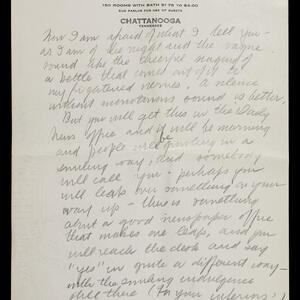 150 ROOMS WITH BATH $1.75 TO $3.00
SUN PARLOR FOR USE OF GUESTS
CHATTANOOGA
TENNESSEE
Now I am afraid of what I tell you –
as I am of the night and the vague
sound like the cheerful singing of
a bottle that comes out of it to
my frightened nerves. A silence
without monotonous sound is better.
But you will get this in the Daily
News office and it will be morning
and people will be greeting in a
smiling way, and somebody
will call you – perhaps you
will leap over something on your
way up – there is something
about a good newspaper office
that makes one leap, and you
will reach the desk and say
"yes" in quite a different way –
with the smiling indulgence
still there (For your inferiors')